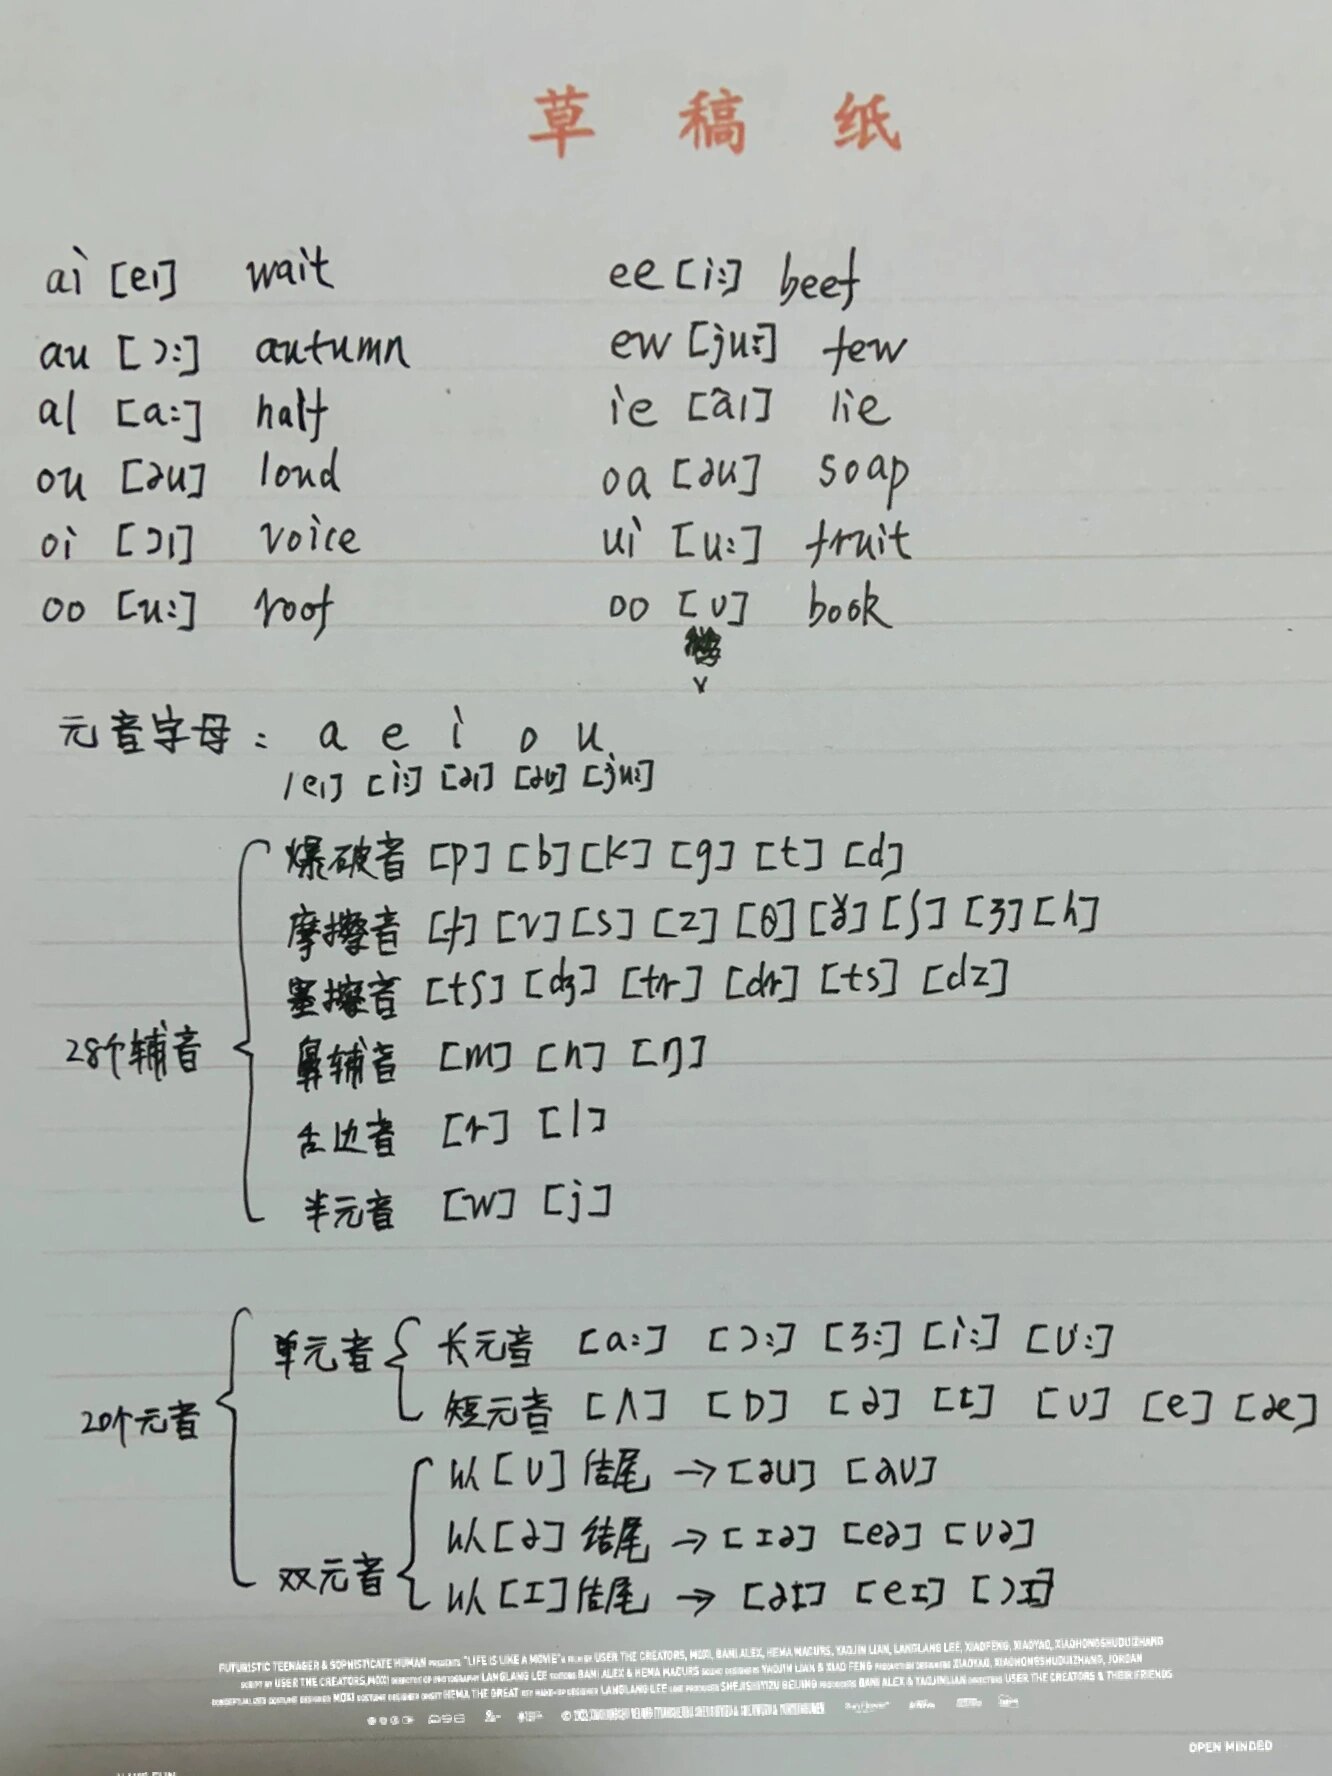 草稿纸
ai [eɪ] wait ee [i:] beef
au [ɔ:] autumn ew [ju:] few
al [a:] half ie [aɪ] lie
ou [əu] loud oa [əu] soap
oi [ɔɪ] voice ui [u:] fruit
oo [u:] roof oo [ʊ] book
元音字母: a e i o u
/eɪ] [i:] [aɪ] [əʊ] [ju:]
爆破音 [p] [b] [k] [g] [t] [d]
摩擦音 [f] [v] [s] [z] [θ] [ð] [ʃ] [ʒ] [h]
塞擦音 [tʃ] [dʒ] [tr] [dr] [ts] [dz]
28个辅音 鼻辅音 [m] [n] [ŋ]
舌边音 [r] [l]
半元音 [w] [j]
单元音 长元音 [a:] [ɔ:] [ɜ:] [i:] [ʊ:]
20个元音 短元音 [ʌ] [ɒ] [ə] [ɪ] [ʊ] [e] [æ]
以[ʊ]结尾 → [əu] [aʊ]
以[ə]结尾 → [ɪə] [eə] [ʊə]
双元音 以[ɪ]结尾 → [aɪ] [eɪ] [ɔɪ]
FUTURISTIC TEENAGER & SOPHISTICATE HUMAN PRESENTS "LIFE IS LIKE A MOVIE" A FILM BY USER THE CREATORS, MOXI, BANI ALEX, HEMA MACURS, YAOJIN LIAN, LANGLANG LEE, XIAOFENG, XIAOYAO, XIAOHONGSHUDUIZHANG
SCRIPT BY USER THE CREATORS, MOXI DIRECTOR OF PHOTOGRAPHY LANGLANG LEE EDITORS BANI ALEX & HEMA MACURS SOUND DESIGNERS YAOJIN LIAN & XIAO FENG PRODUCTION DESIGNERS XIAOYAO, XIAOHONGSHUDUIZHANG, JORDAN
CONCEPTUALIZED COSTUME DESIGNER MOXI COSTUME DESIGNER ONSET HEMA THE GREAT KEY MAKE-UP DESIGNER LANGLANG LEE LINE PRODUCER SHEJISHIYIZU BEIJING PRODUCERS BANI ALEX & YAOJINLIAN DIRECTORS USER THE CREATORS & THEIR FRIENDS
OPEN MINDED